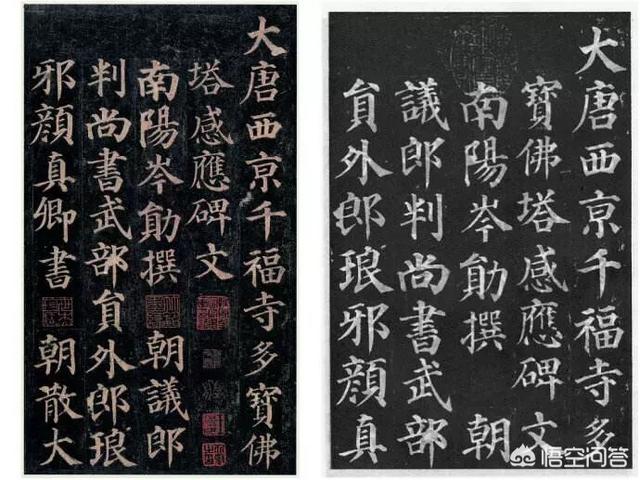 大唐西京千福寺多寶佛
塔感應碑文
南陽岑勛撰 朝議郎
判尚書武部員外郎琅
邪顏真卿書 朝散大
大唐西京千福寺多
寶佛塔感應碑文
南陽岑勛撰 朝
議郎判尚書武部
員外郎琅邪顏真
悟空问答